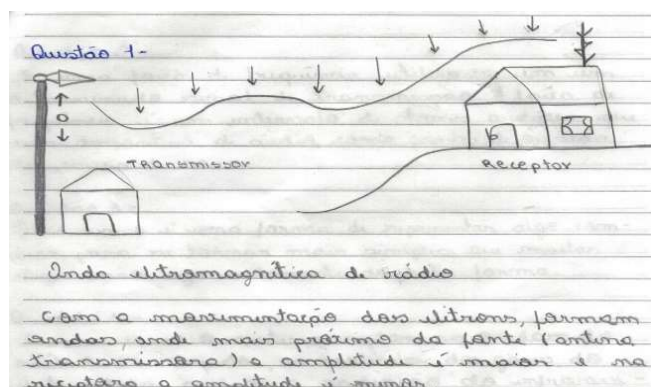 Questão 1-
Transmissor
Receptor
Onda eletromagnética de rádio
Com a movimentação dos elétrons, formam
ondas, onde mais próximo da fonte (antena
transmissora) a amplitude é maior e na
receptora a amplitude é menor